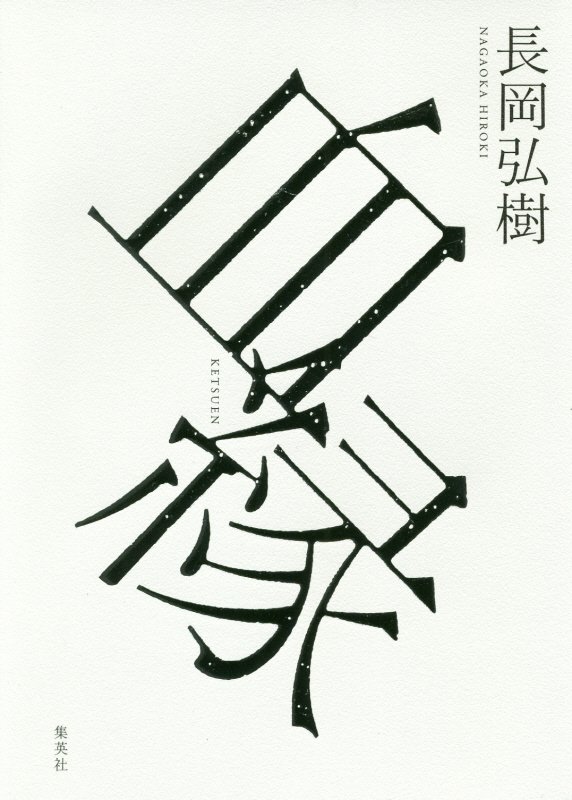 長岡弘樹
NAGAOKA HIROKI
血縁
KETSUEN
集英社